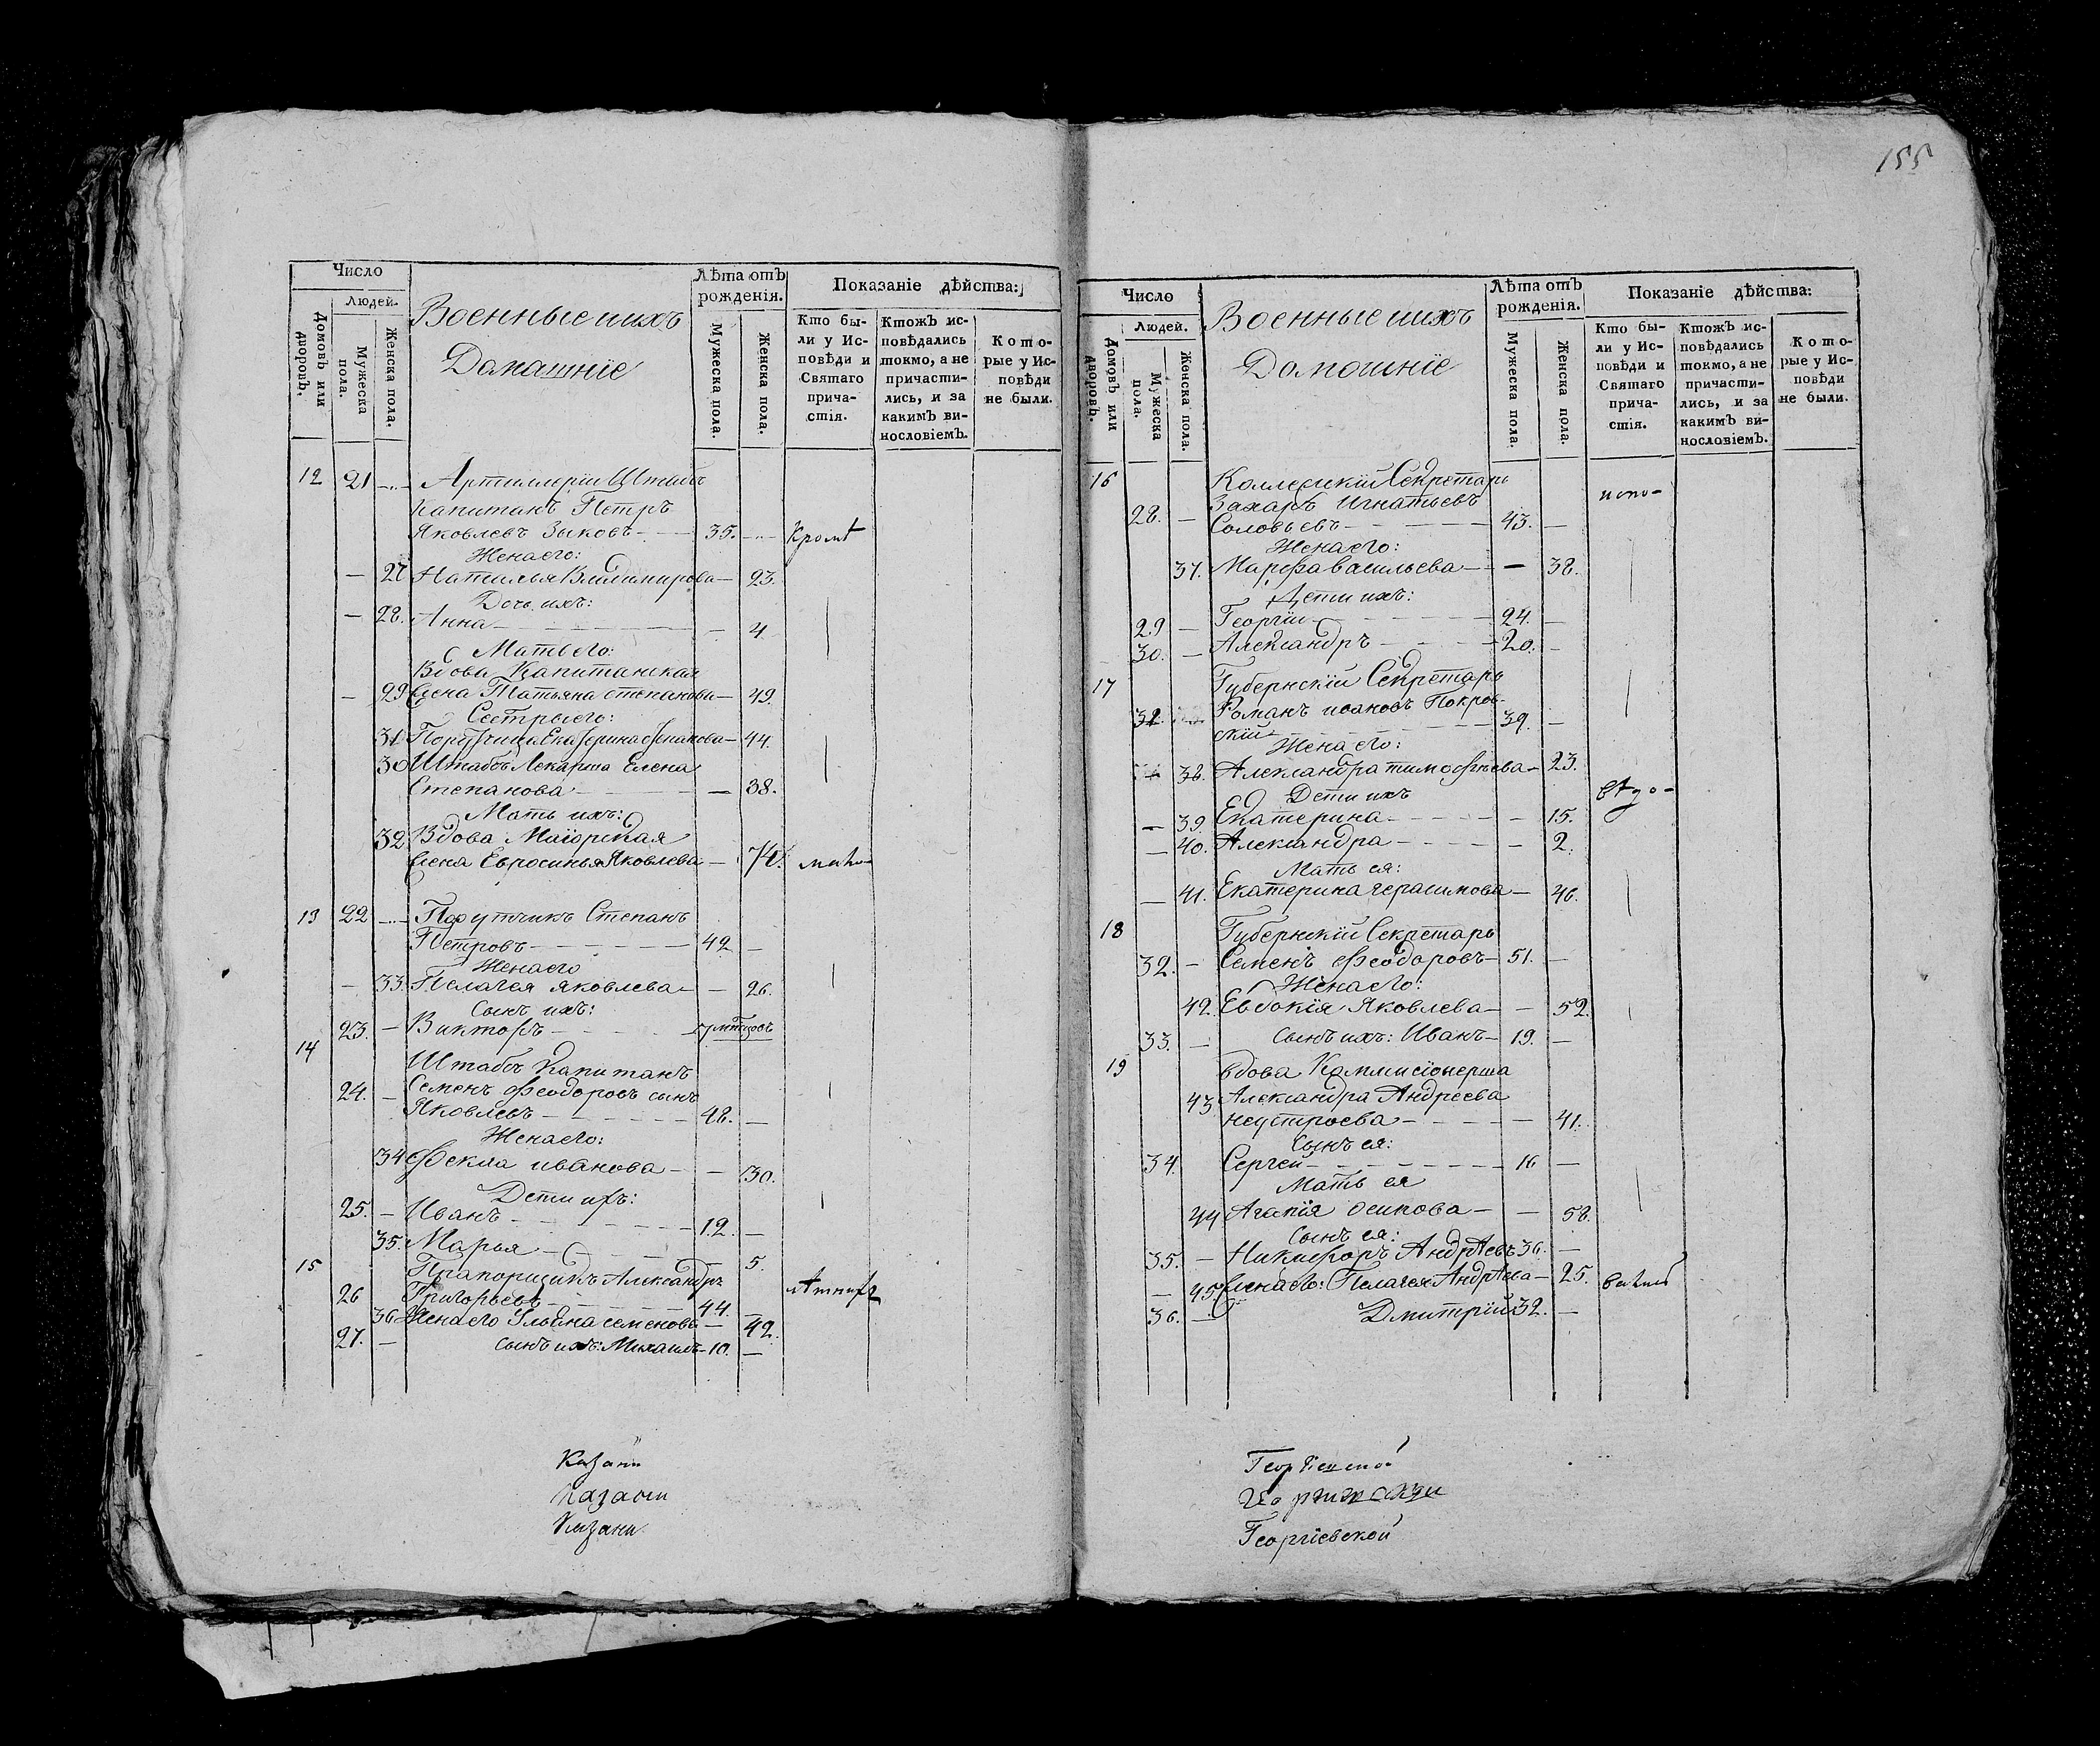 155
Число
Людей.
Домовъ или дворовъ.
Мужеска пола.
Женска пола.
Военные ихъ
Домашніе
Лѣта отъ рожденія.
Мужеска пола.
Женска пола.
Показаніе дѣйства:
Кто были у Исповѣди и Святаго причастія.
Ктожъ исповѣдались токмо, а не причастились, и за какимъ винословіемъ.
Которые у Исповѣди не были.
12 21 Артиллеріи Штабъ
Капитанъ Петръ
Яковлевъ Зыковъ 35. Кромѣ
Жена его:
27 Наталья Владимирова 23.
Дочь ихъ:
28. Анна 4
Мать его:
Вдова Капитанская
29 жена Татьяна степанова 49.
Сестры его:
31 Порутчица Екатерина степанова 44.
30 Штабъ Лекарша Елена
Степанова 38.
Мать ихъ:
32 Вдова Маіорская
жена Евросинья Яковлева 70.
13 22 Порутчикъ Степанъ
Петровъ 42
Жена его
33. Пелагея яковлева 26.
Сынъ ихъ:
23. Викторъ
14 Штабъ Капитанъ
24. Семенъ Феодоровъ сынъ
Яковлевъ 48.
Жена его:
34 Фекла иванова 30.
Дети ихъ:
25. Иванъ 12.
35. Марья 5.
15 Прапорщикъ Александръ
26 Григорьевъ 44.
36 Жена его Ульяна семенова 42.
27. сынъ ихъ: Михаилъ 10.
Казани
Казани
Казани
Число
Людей.
Домовъ или дворовъ.
Мужеска пола.
Женска пола.
Военные ихъ
Домошніе
Лѣта отъ рожденія.
Мужеска пола.
Женска пола.
Показаніе дѣйства:
Кто были у Исповѣди и Святаго причастія.
Ктожъ исповѣдались токмо, а не причастились, и за какимъ винословіемъ.
Которые у Исповѣди не были.
16 Коллескій Секретарь
28. Захаръ Игнатьевъ
Соловьевъ 43.
Жена его:
37. Марфа васильева 38.
Дети ихъ:
29 Георгіи 24.
30. Александръ 20.
17 Губернскій Секретарь
31. Романъ ивановъ Покров-
скій 39.
Жена его:
38. Александра тимофѣева 23.
Дети ихъ
39. Екатерина 15.
40. Александра 2.
Мать ея:
41. Екатерина герасимова 46.
18 Губернскій Секретарь
32. Семенъ Феодоровъ 51.
Жена его:
42. Евдокія Яковлева 52.
33. сынъ ихъ: Иванъ 19.
19 вдова Коммисіонерша
43 Александра Андреева
Неустроева 41.
Сынъ ея:
34. Сергеи 16
Мать ея
44 Агапія осипова 58.
Сынъ ея:
35. Никифоръ Андрѣевъ 36.
45. жена его: Пелагея Андрѣева 25.
36. Дмитрій 32.
Георгіевской
Георгіевской